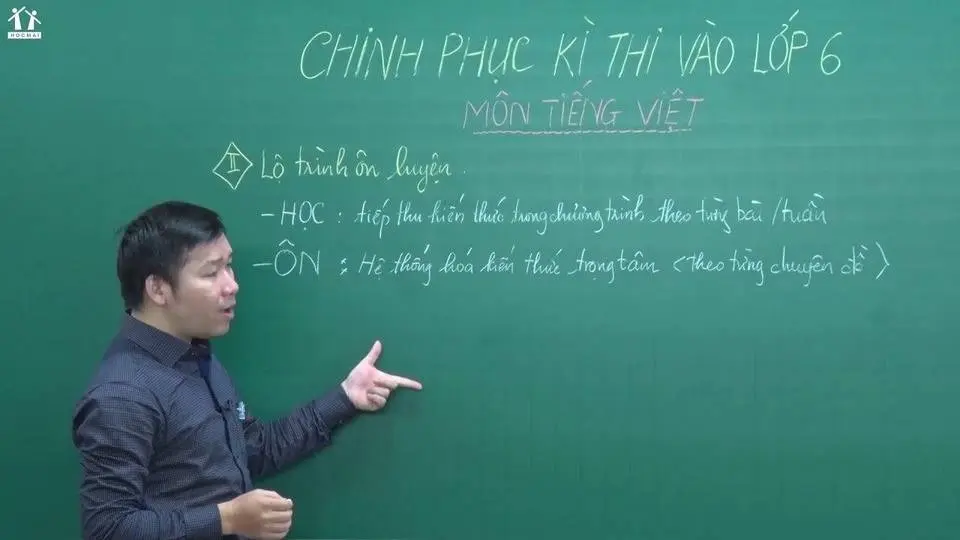 HOCMAI
CHINH PHỤC KÌ THI VÀO LỚP 6
MÔN TIẾNG VIỆT
II Lộ trình ôn luyện.
- HỌC : tiếp thu kiến thức trong chương trình theo từng bài / tuần
- ÔN : Hệ thống hóa kiến thức trọng tâm < theo từng chuyên đề >